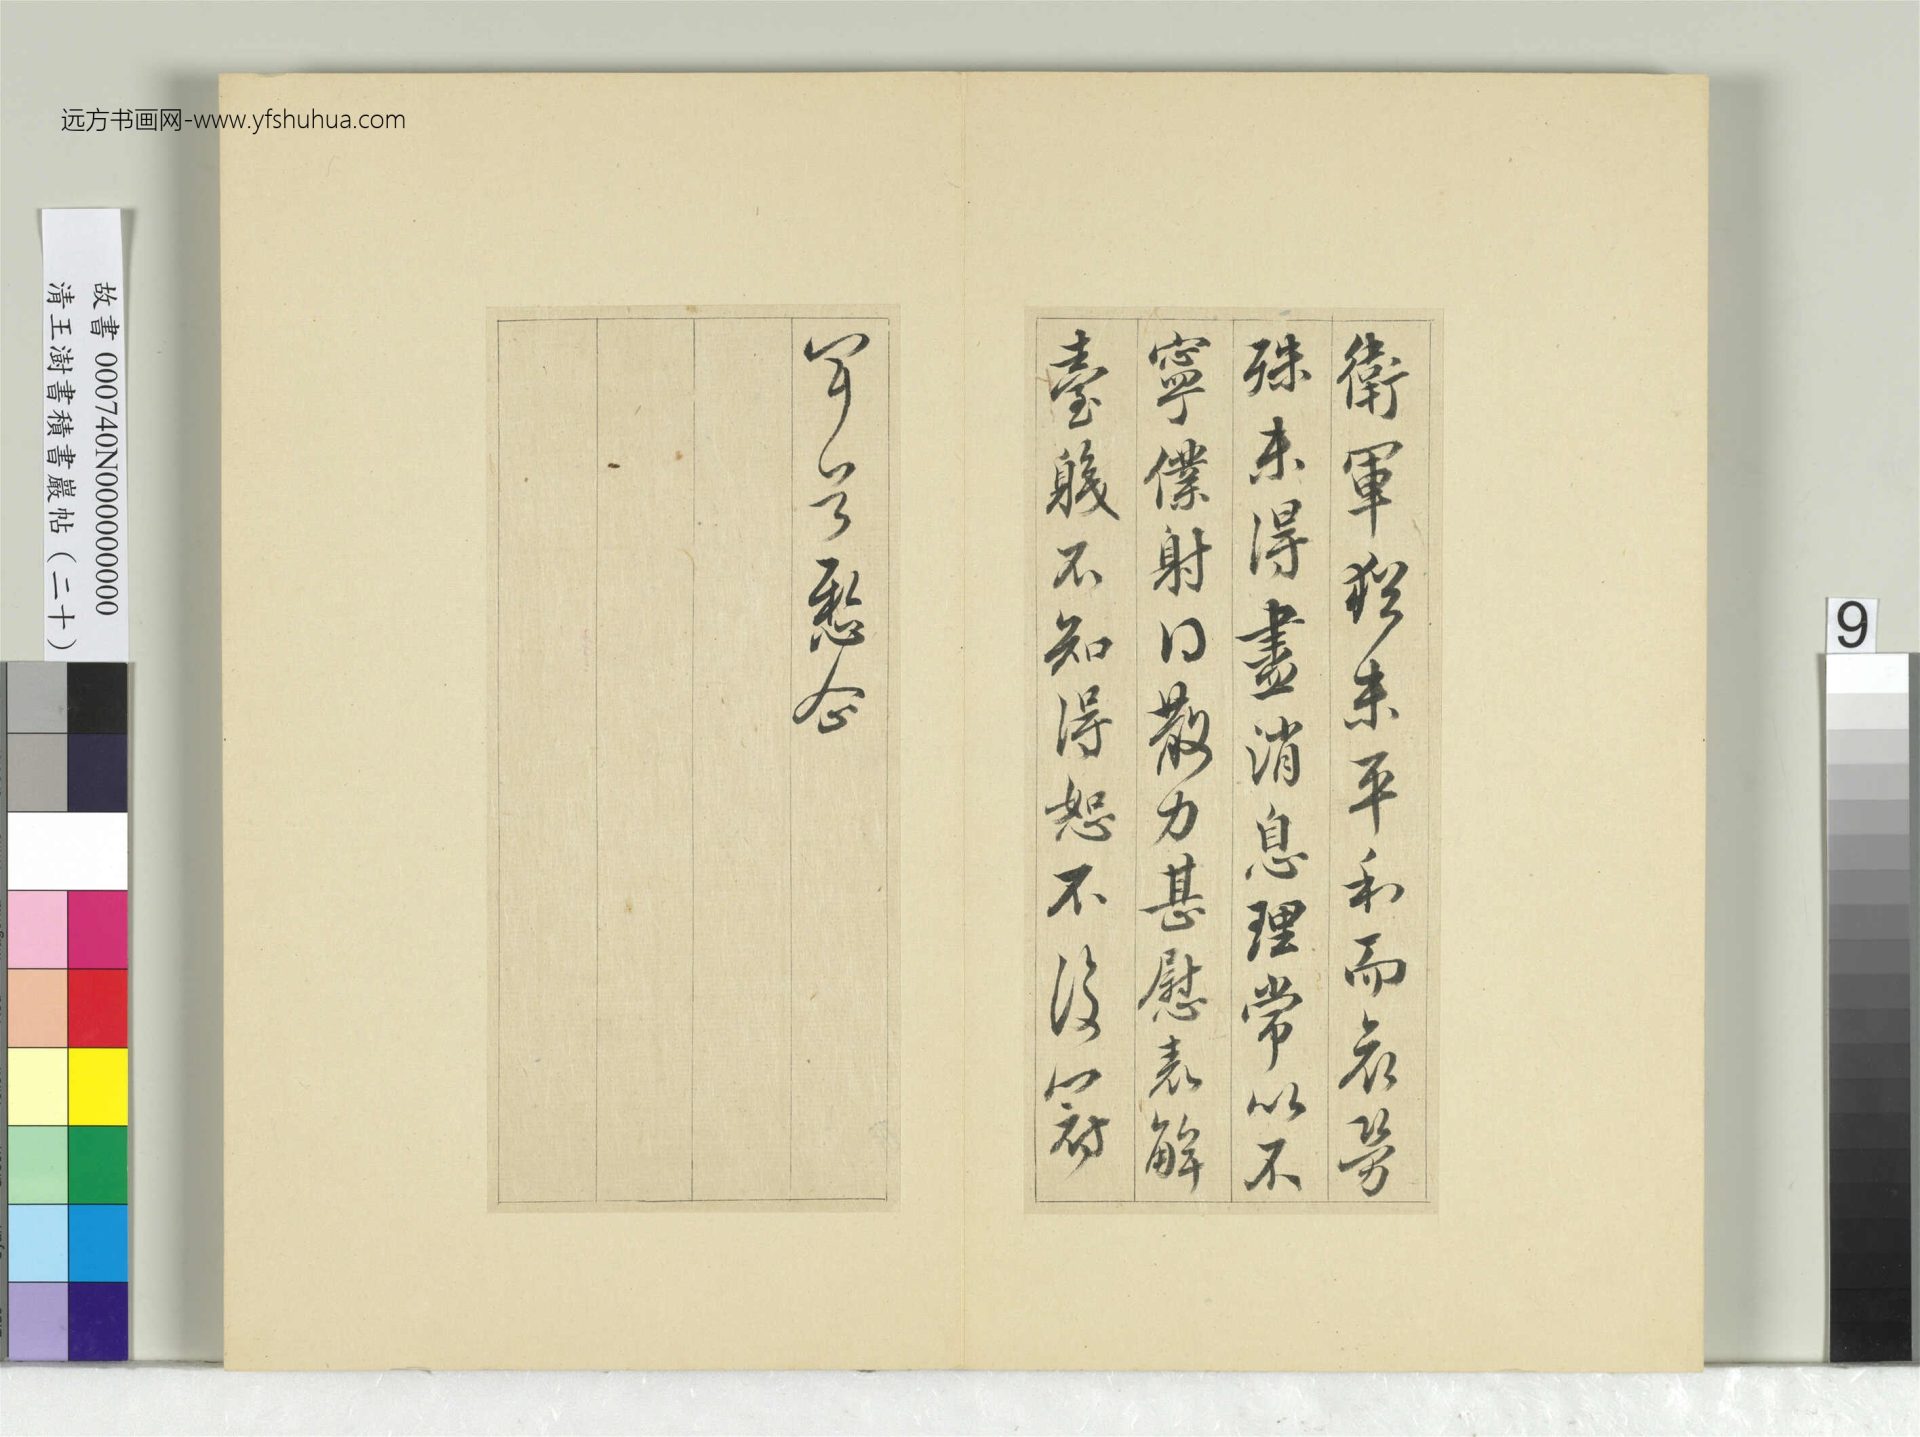 远方书画网-www.yfshuhua.com
故書 000740N000000000
清王澍書積書巖帖(二十)
9
衛軍猶未平和而哀勞
殊未得盡消息理常以不
寧僕射日散力甚慰表解
臺職不知得恕不復
企